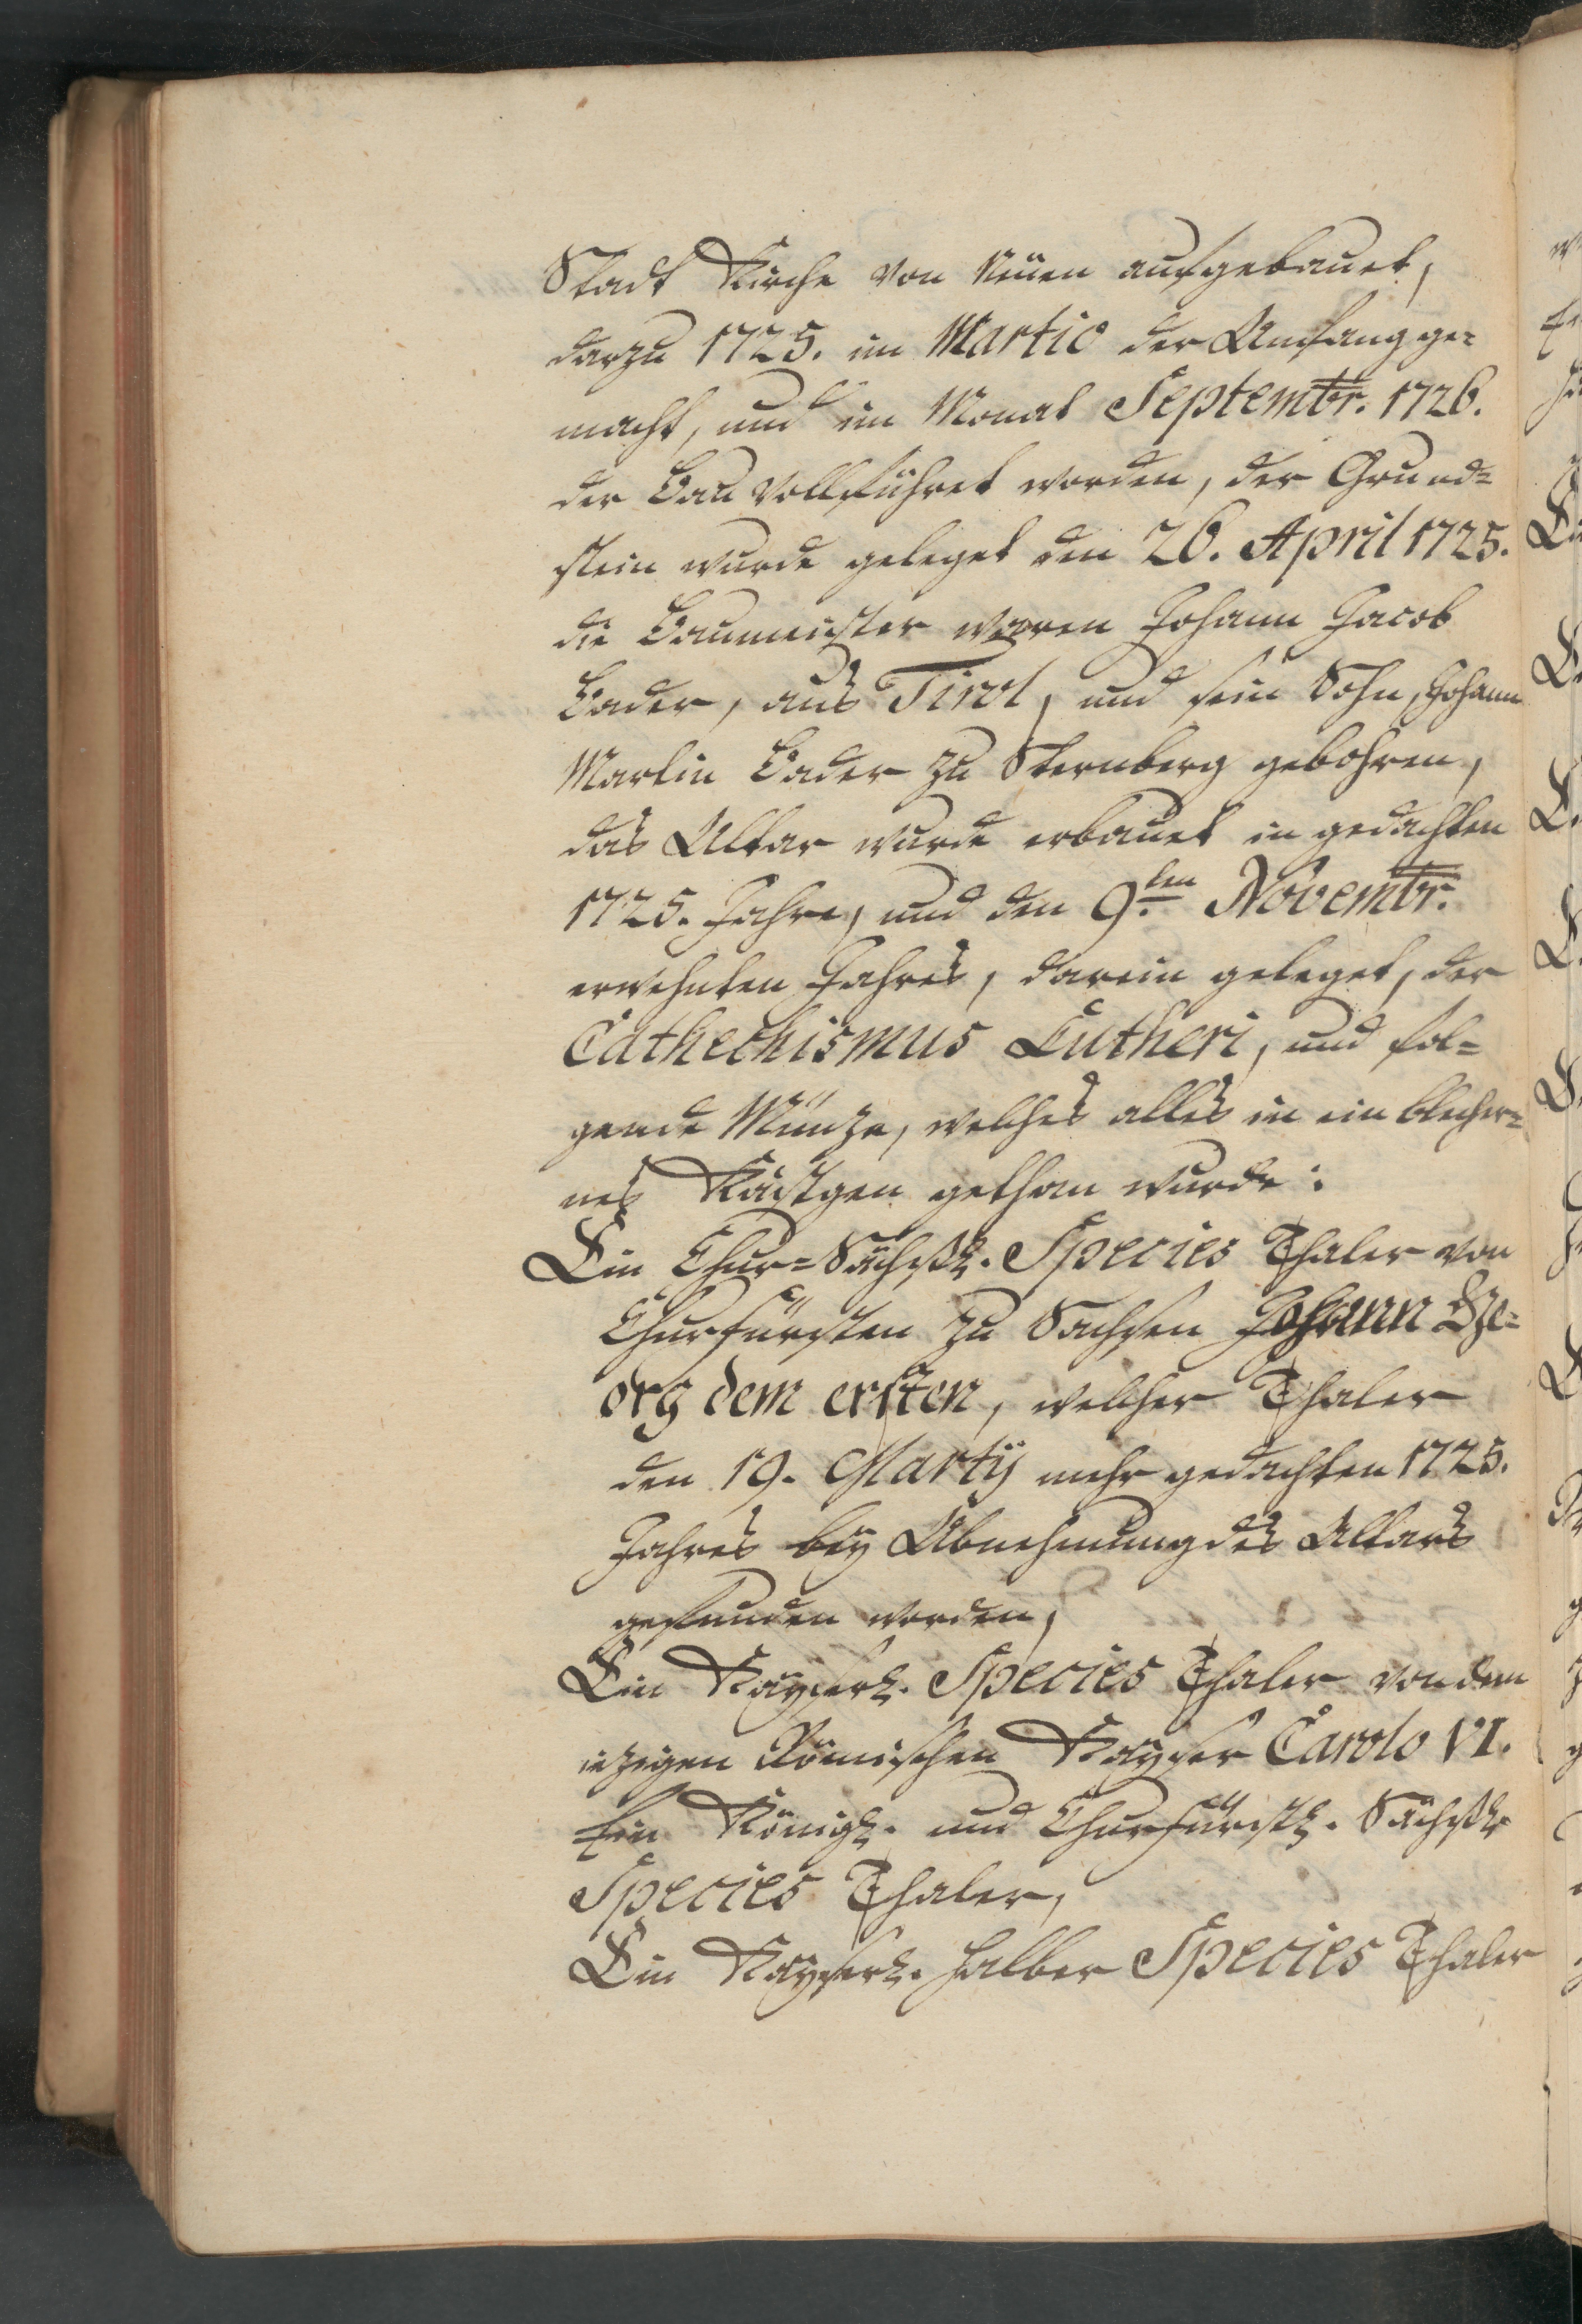 Stadt Kirche von Neuen aufgebauet,
darzu 1725. im Martio der Anfang ge=
macht, und im Monat Septembr. 1726.
der Bau vollführet worden, der Grund=
stein wurde geleget den 26. April 1725.
die Baumeister waren Johann Jacob
Bader, aus Tirol, und sein Sohn, Johann
Martin Bader zu Sternberg gebohren,
das Altar wurde erbauet in gedachten
1725. Jahre, und den 9.ten Novembr.
erwehnten Jahres, darein geleget, der
Cathechismus Lutheri, und fol=
gende Münze, welches alles in ein blecher=
nes Kästgen gethan wurde:
Ein Chur=Sächßl. Species Thaler von
Churfürsten zu Sachsen Johann Ge=
org dem ersten, welcher Thaler
den 19. Martÿ mehr gedachten 1725.
Jahres beÿ Abnehmung des Altars
gefunden worden,
Ein Kayserl. Species Thaler von dem
iezigen Römischen Kayser Carolo VI.
Ein Königl. und Churfürstl. Sächßl.
Species Thaler,
Ein Kayserl. halber Species Thaler